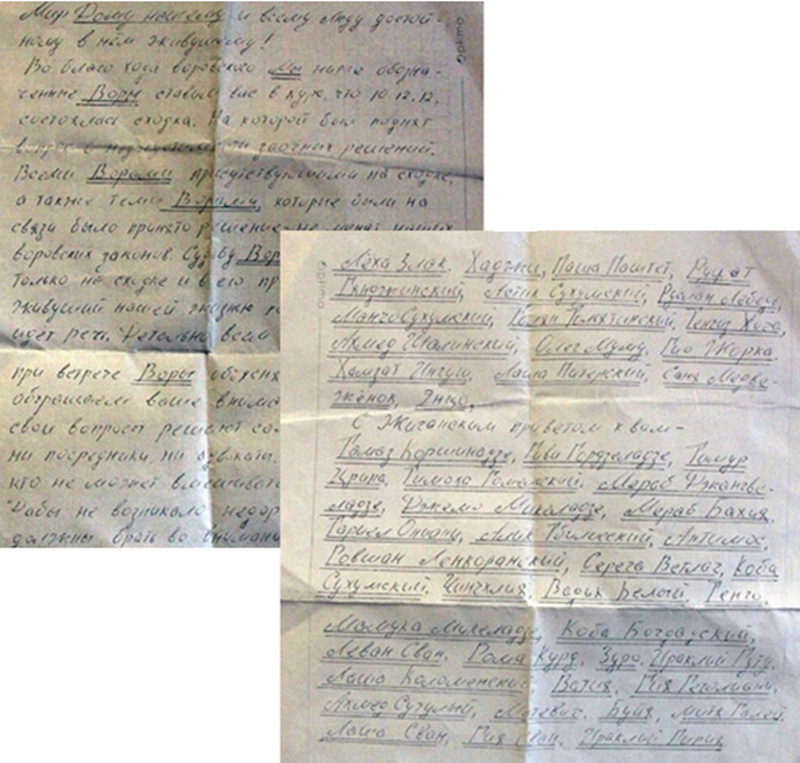 Мир Дому нашему и всему Люду достой-
ному в нём живущему!
Во благо хода воровского Мы ниже обозна-
ченные Воры ставим вас в курс, что 10.12.12,
состоялась сходка. На которой был поднят
вопрос о заочных решений.
Всеми Ворами присутствующими на сходке,
а также теми Ворами, которые были на
связи было принято решение не менять наших
воровских законов. Судьбу Вор
только на сходке и в его пр
живущий нашей жизнью
идёт речь. Детально всем
при встрече Воры объясня
обращаем ваше внима
свои вопросы решают са
ни посредники, ни адвокаты.
кто не может вмешиват
Дабы не возникало недор
должны брать во внимани
Optima
Лёха Злак, Хаджи, Паша Паштет, Руфат
Гянджинский, Лотик Сухумский, Руслан Лебедь,
Манчо Сухумский, Тенгиз Хота,
Ахмед Шалинский, Олег Муму, Гио Жорка,
Хамзат Ингуш, Лаша Питерский, Саня Медве-
жёнок, Янцо,
С Жиганским приветом к вам-
Тамаз Коршинадзе, Гиви Горделадзе, Тимур
Тимоха Гомельский, Мераб Джангве-
ладзе, Джемо Микеладзе, Мераб Бахия,
Тариел Ониани, Алик Тбилисский, Антимос,
Ровшан Ленкоранский, Серёга Ветлач, Коба
Сухумский, Чинчхлия, Вадик Белый, Тенго,
Мамука Микеладзе, Коба
Леван Сван, Рома Курд, Зуро, Ираклий
Лаша Коломенский, Вахия, Гия Гечемиани,
Ахмед Сутулый, Мацевич, Буйя, Митя Галей,
Лаша Сван, Гия Сван, Ираклий Пипия